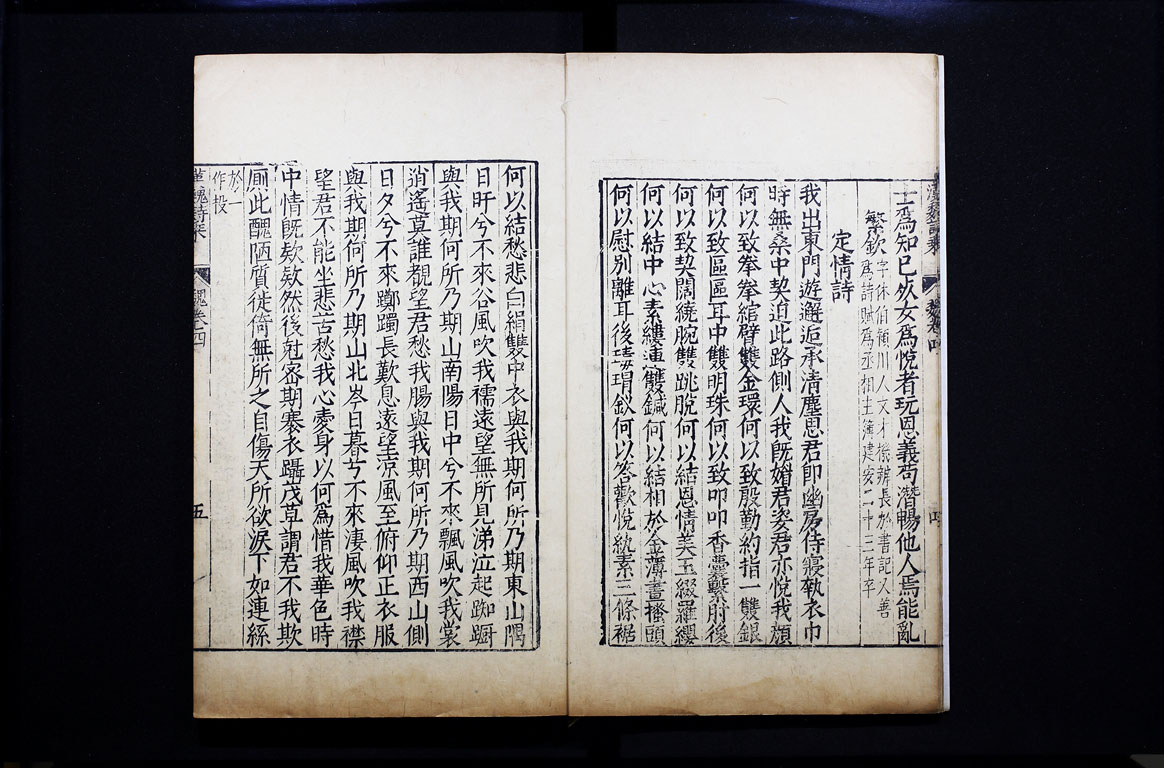 漢魏詩乘
魏卷四
四
士爲知己死女爲悅者玩恩義苟潛暢他人焉能亂
繁欽字休伯潁川人文才機辨長於書記又善爲詩賦爲丞相主簿建安二十三年卒
定情詩
我出東門遊邂逅承清塵思君即幽房侍寢執衣巾
時無桑中契迫此路側人我既媚君姿君亦悅我顏
何以致拳拳綰臂雙金環何以致殷勤約指一雙銀
何以致區區耳中雙明珠何以致叩叩香囊繫肘後
何以致契闊繞腕雙跳脫何以結恩情美玉綴羅纓
何以結中心素縷連雙鍼何以結相於金薄畫搔頭
何以慰別離耳後瑇瑁釵何以答歡悅紈素三條裾
何以結愁悲白絹雙中衣與我期何所乃期東山隅
日旰兮不來谷風吹我襦遠望無所見涕泣起踟躕
與我期何所乃期山南陽日中兮不來飄風吹我裳
逍遙莫誰覩望君愁我腸與我期何所乃期西山側
日夕兮不來躑躅長歎息遠望涼風至俯仰正衣服
與我期何所乃期山北岑日暮兮不來淒風吹我襟
望君不能坐悲苦愁我心愛身以何爲惜我華色時
中情既欵欵然後尅密期褰衣躡茂草謂君不我欺
厠此醜陋質徙倚無所之自傷失所欲淚下如連絲
於一作投
漢魏詩乘
魏卷四
五